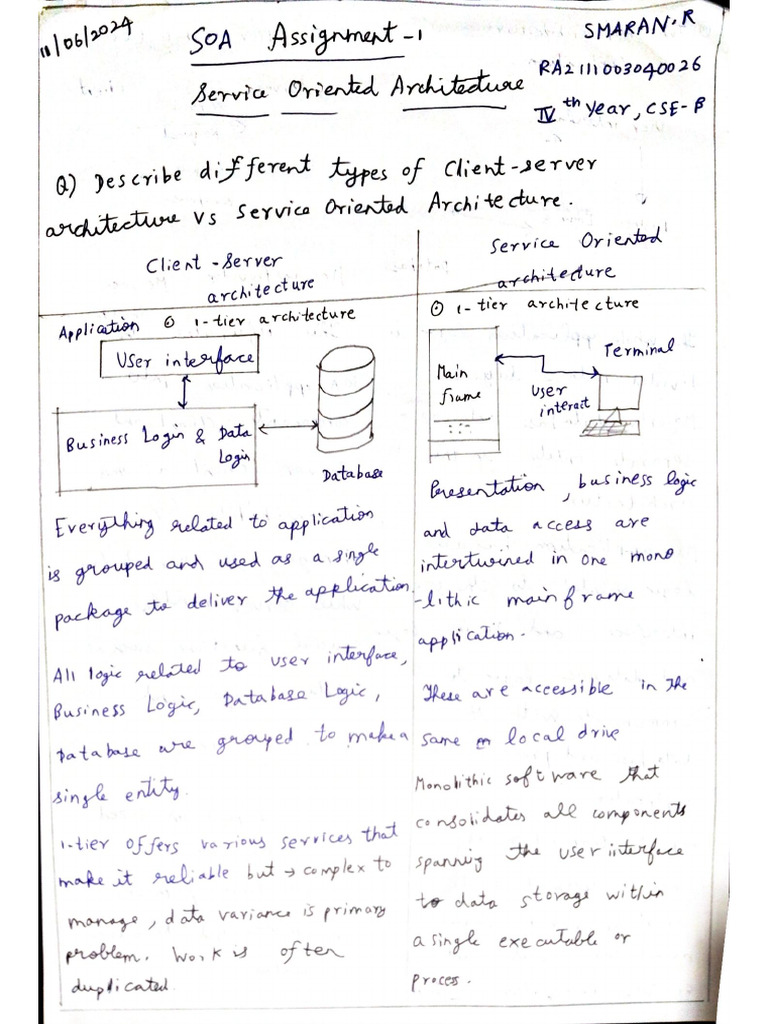 11/06/2024
SOA Assignment -1
SMARAN.R
Service Oriented Architecture
RA2111003040026
IV th year, CSE-B
Q) Describe different types of Client-server
architecture vs Service Oriented Architecture.
Client-Server
architecture
Application ⊙ 1-tier architecture
User interface
Business Login & Data
Login
Database
Everything related to application
is grouped and used as a single
package to deliver the application
All logic related to user interface,
Business Logic, Database Logic,
Database are grouped to make a
single entity.
1-tier offers various services that
make it reliable but → complex to
manage, data variance is primary
problem. Work is often
duplicated.
Service Oriented
architecture
⊙ 1-tier architecture
Main
frame
Terminal
User
interact
Presentation, business logic
and data access are
intertwined in one mono
-lithic mainframe
application.
These are accessible in the
same local drive
Monolithic software that
consolidates all components
spanning the user iinterface
to data storage within
a single executable or
process.